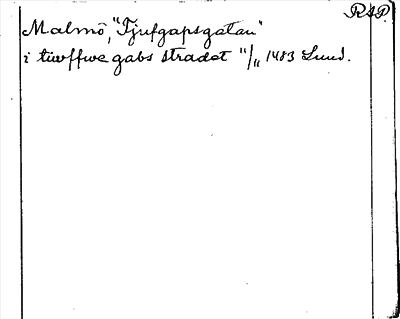 RAP.
Malmö, "Tjufgapsgatan"
i tiwffwe gabs stradet 11/11 1483 Lund.